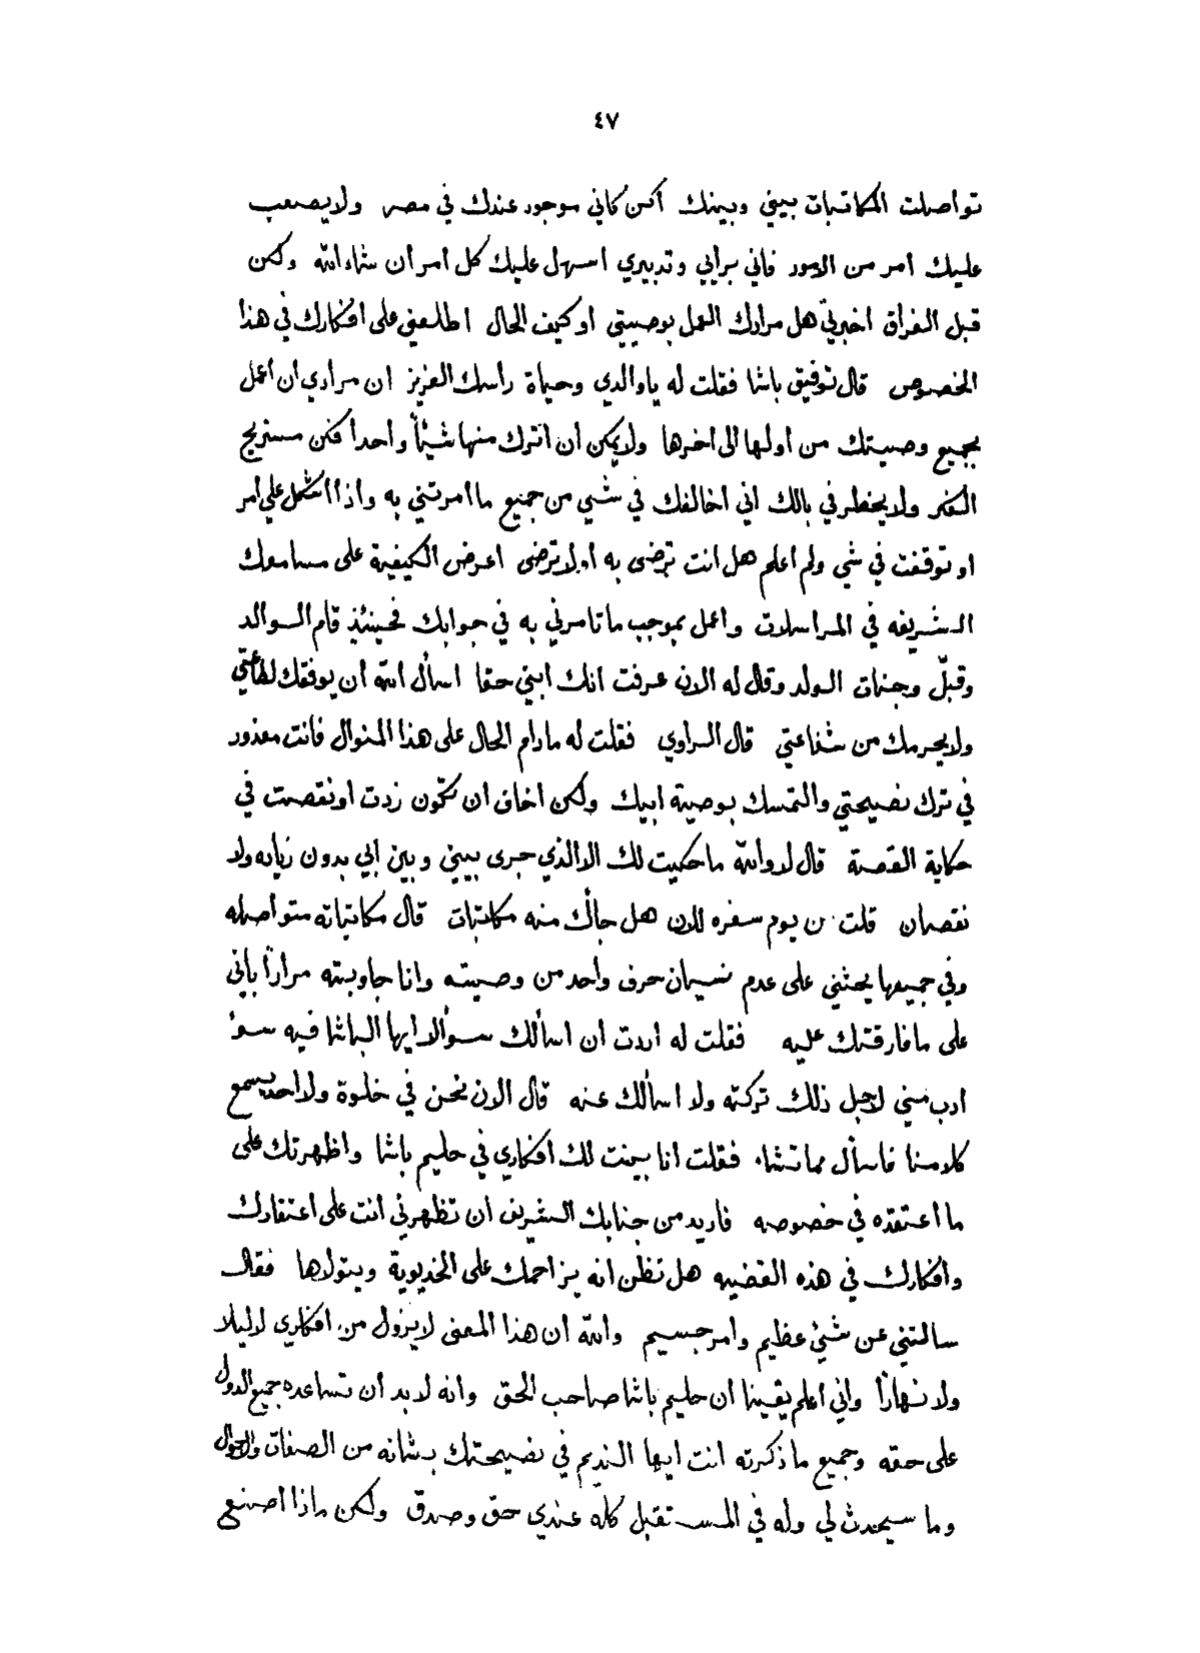 ٤٧
تواصلت المكاتبات بيني وبينك أكن كأني موجود عندك في مصر ولا يصعب
عليك امر من الامور فاني برأيي وتدبيري اسهل عليك كل امر أن شاء الله ولكن
قبل الفراق اخبرني هل مرادك العمل بوصيتي او كيف الحال اطلعني على افكارك في هذا
الخصوص قال توفيق باشا فقلت له ياوالدي وحياة راسك العزيز ان مرادي ان أعمل
بجميع وصيتك من اولها الى اخرها ولا يمكن ان اترك منها شيئاً واحداً فكن مستريح
الفكر ولا يخطر في بالك اني اخالفك في شي من جميع ما امرتني به واذا اشكل علي أمر
او توقفت في شي ولم اعلم هل انت ترضى به او لا ترضى اعرض الكيفية على مسامعك
الشريفه في المراسلات واعمل بموجب ما تامرني به في جوابك فحينئذٍ قام الوالد
وقبّل وجنات الولد وقال له الان عرفت انك ابني حقا اسأل الله أن يوفقك لطاعتي
ولا يحرمك من شفاعتي قال الراوي فقلت له مادام الحال على هذا المنوال فانت معذور
في ترك نصيحتي والتمسك بوصية ابيك ولكن اخاف ان تكون زدت او نقصت في
حكاية القصة قال لا والله ما حكيت لك الا الذي جرى بيني وبين ابي بدون زياده ولا
نقصان قلت من يوم سفره للان هل جاك منه مكاتبات قال مكاتباته متواصله
وفي جميعها يحثني على عدم نسيان حرف واحد من وصيته وانا جاوبته مراراً بأني
على ما فارقتك عليه فقلت له اردت ان اسألك سوألا ايها الباشا فيه سوء
ادب مني لاجل ذلك تركته ولا اسألك عنه قال الان نحن في خلوة ولا احد يسمع
كلامنا فاسأل مما تشاء فقلت انا بينت لك افكاري في حليم باشا واظهرتك على
ما اعتقده في خصوصه فاريد من جنابك الشريف ان تظهرني انت على اعتقادك
وافكارك في هذه القضيه هل تظن انه يزاحمك على الخديوية ويتولاها فقال
سالتني عن شيئ عظيم وامر جسيم والله ان هذا المعنى لا يزول من افكاري لا ليلا
ولا نهاراً واني اعلم يقينا ان حليم باشا صاحب الحق وانه لا بد أن تساعده جميع الدول
على حقه وجميع ما ذكرته انت ايها النديم في نصيحتك بشانه من الصفات والاحوال
وما سيحدث لي وله في المستقبل كله عندي حق وصدق ولكن ماذا اصنع